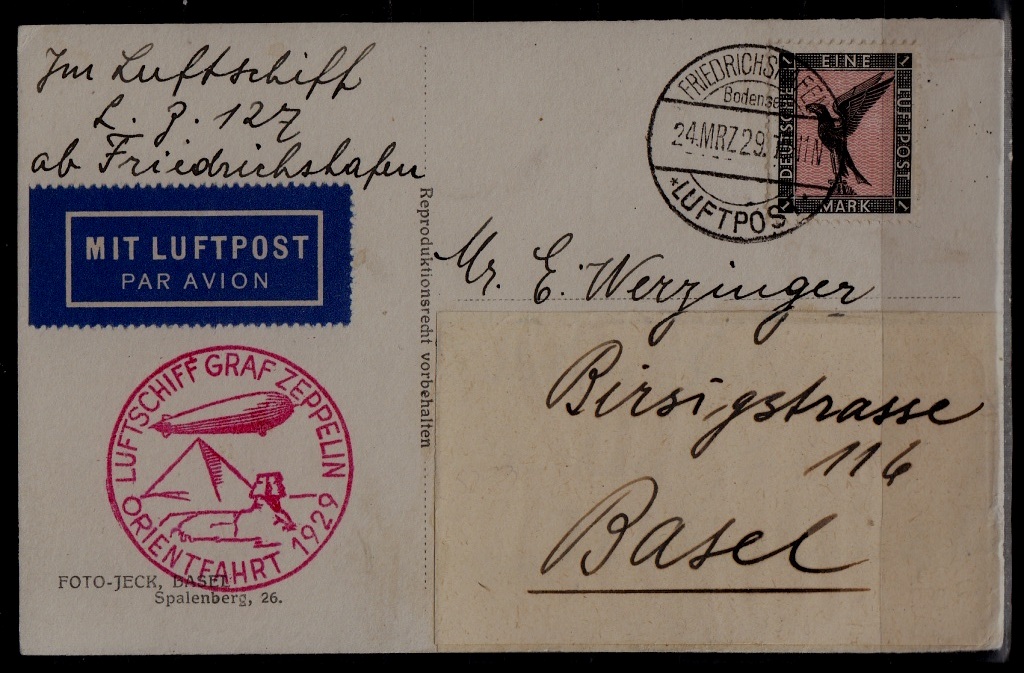 Im Luftschiff
L. Z. 127
ab Friedrichshafen
MIT LUFTPOST
PAR AVION
LUFTSCHIFF GRAF ZEPPELIN
ORIENTFAHRT 1929
FOTO-JECK, BASEL
Spalenberg, 26.
Reproduktionsrecht vorbehalten
Bodensee
24.MRZ.29.
*LUFTPOST
EINE
DEUTSCHE
LUFTPOST
1 MARK 1
Mr. E. Werzinger
Birsigstrasse
116
Basel